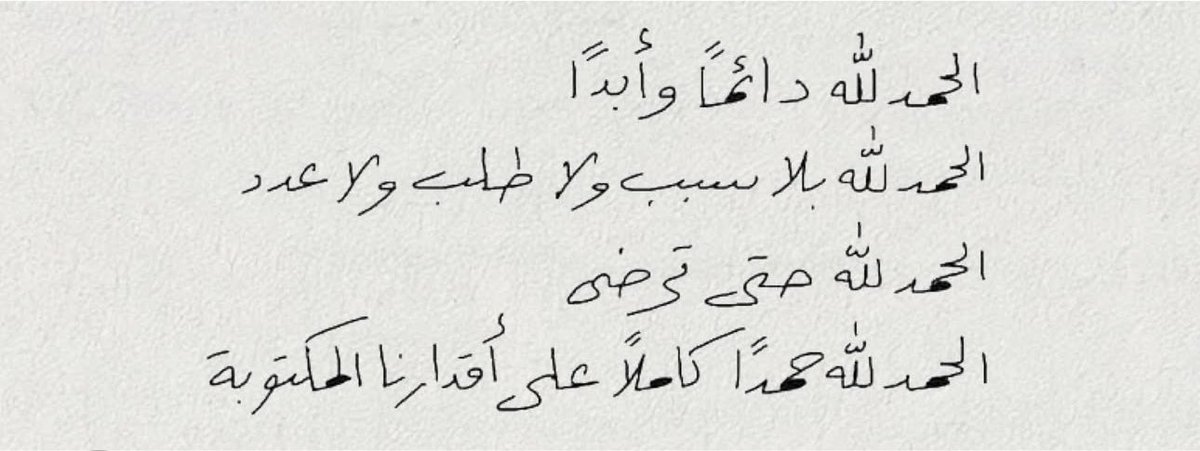 الحمد لله دائمًا وأبدًا
الحمد لله بلا سبب ولا طلب ولا عدد
الحمد لله حتى ترضى
الحمد لله حمدًا كاملًا على أقدارنا المكتوبة